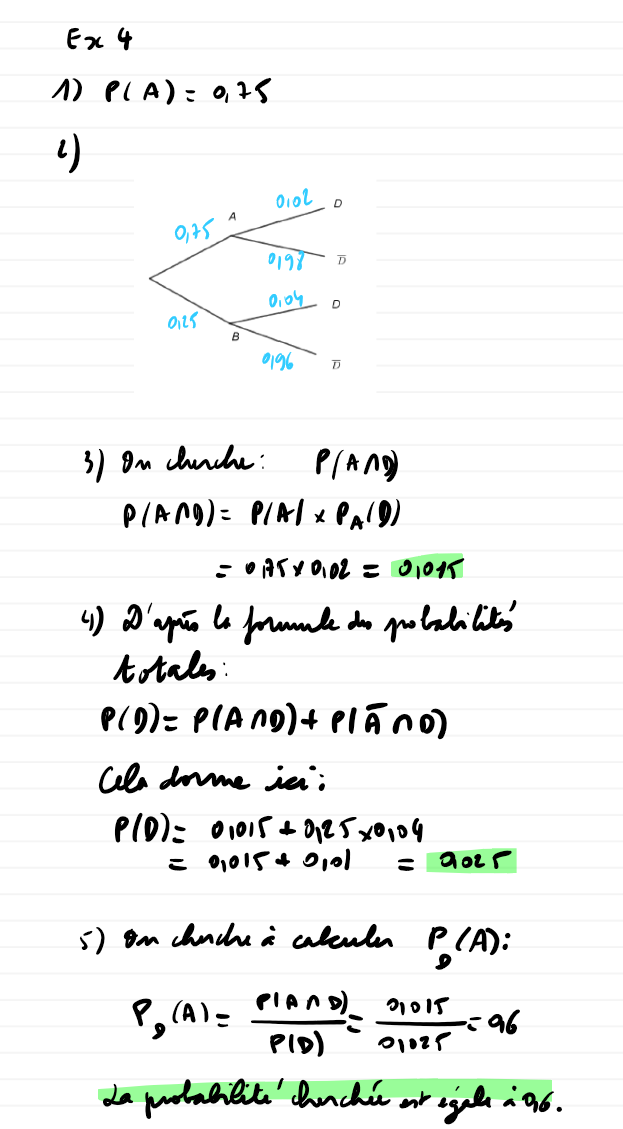 Ex 4
1) P(A) = 0,75
2)
0,02 D
A
0,75
0,98 D̅
0,04 D
0,25
B
0,96 D̅
3) On cherche : P(A∩D)
P(A∩D) = P(A) × P_A(D)
= 0,75 × 0,02 = 0,015
4) D'après la formule des probabilités
totales :
P(D) = P(A∩D) + P(A̅∩D)
Cela donne ici :
P(D) = 0,015 + 0,25 × 0,04
= 0,015 + 0,01 = 0,025
5) On cherche à calculer P_D(A) :
P_D(A) = P(A∩D)/P(D) = 0,015/0,025 = 0,6
La probabilité cherchée est égale à 0,6.